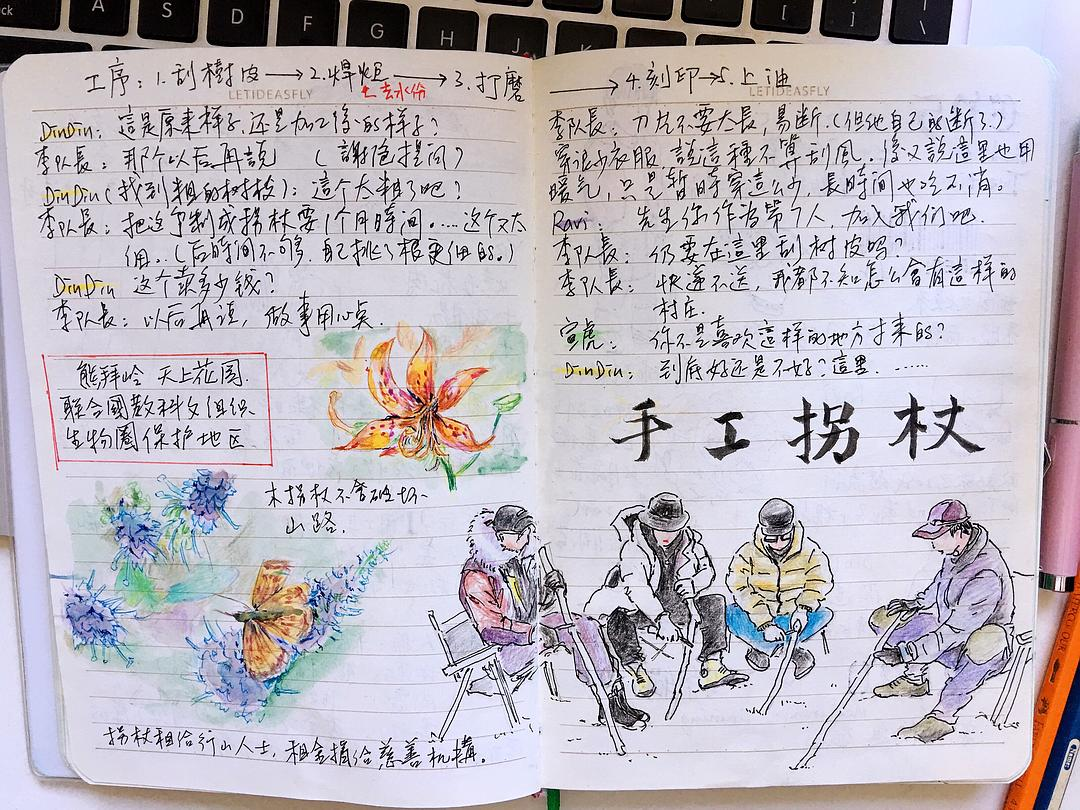 工序：1.刮樹皮→2.焊炬→3.打磨
去水份
LETIDEASFLY
DinDin：這是原来样子，还是加工後的样子？
李队長：那个以后再説 （謝絕提问）
DinDin（找到粗的树枝）：這个太粗了吧？
李队長：把这个制成拐杖要1个月時间。……这个又太
细。（后時间不够，自己挑了根更细的。）
DinDin 这个卖多少钱？
李队長：以后再说，做事用心点。
熊拜岭 天上花園.
聯合國教科文组织
生物圈保护地区
木拐杖不會破坏
山路.
拐杖租给行山人士，租金捐给慈善机構。
→4.刻印→5.上油
LETIDEASFLY
李队長：刀片不要太長，易断.（但他自己的断了.）
穿很少衣服，説這種不算刮風。後又説這里也用
暖气，只是暂時穿這么少，長時间也吃不消。
Ravi： 先生你作为第7人，加入我们吧.
李队長：仍要在這里刮树皮吗？
李队長：快递不送，我都不知怎么會有這样的
村庄.
寅虎： 你不是喜欢這样的地方才来的？
DinDin： 到底好还是不好？這里. ……
手工拐杖